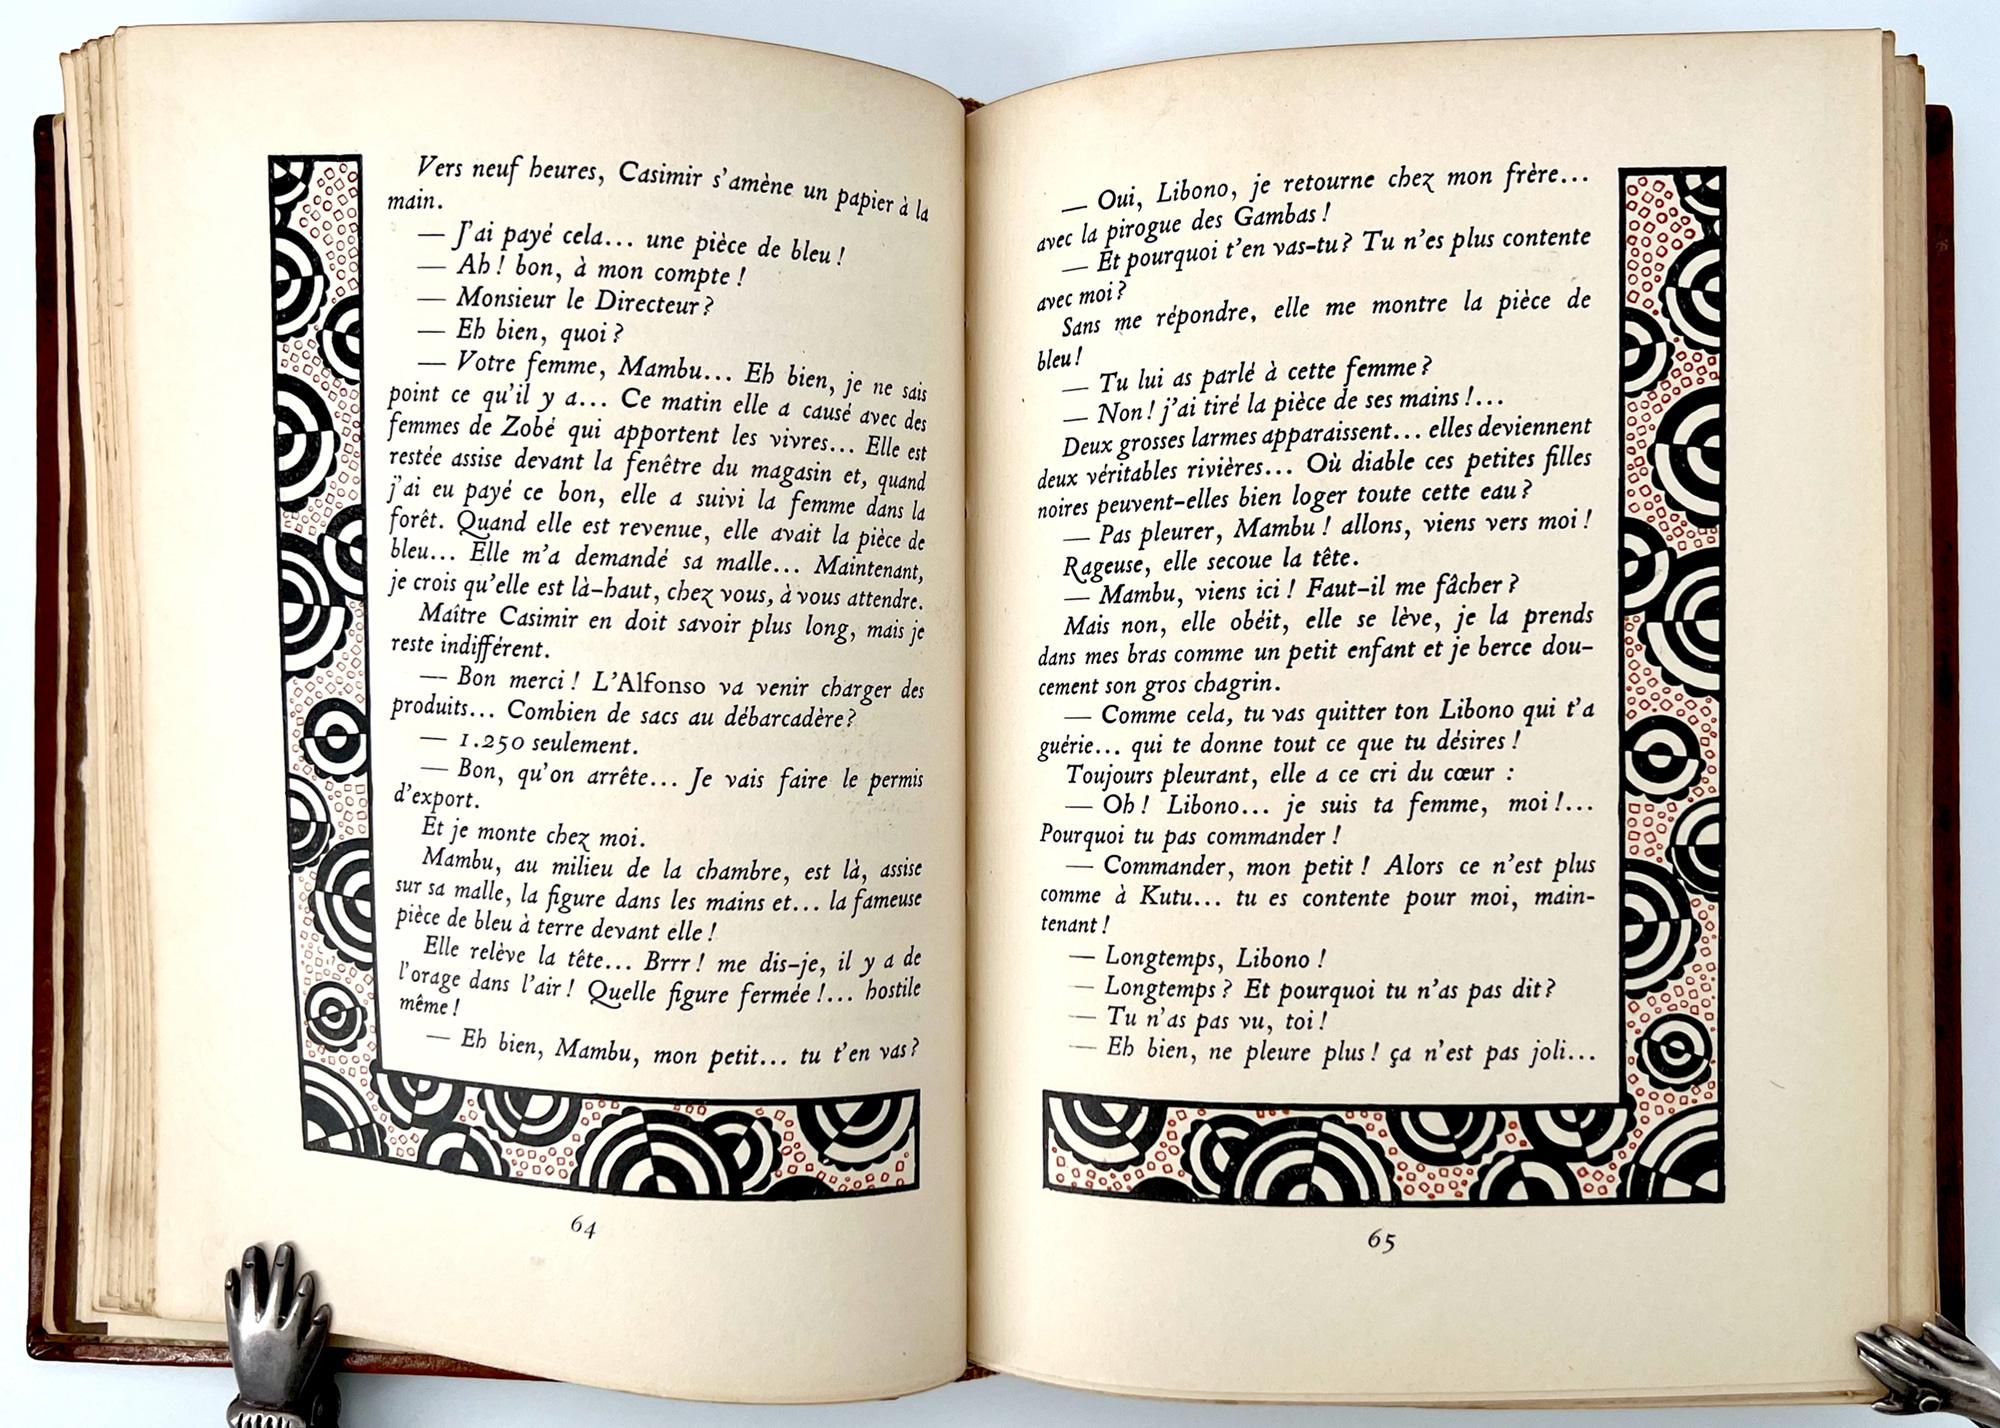 Vers neuf heures, Casimir s'amène un papier à la
main.
— J'ai payé cela... une pièce de bleu !
— Ah ! bon, à mon compte !
— Monsieur le Directeur ?
— Eh bien, quoi ?
— Votre femme, Mambu... Eh bien, je ne sais
point ce qu'il y a... Ce matin elle a causé avec des
femmes de Zobé qui apportent les vivres... Elle est
restée assise devant la fenêtre du magasin et, quand
j'ai eu payé ce bon, elle a suivi la femme dans la
forêt. Quand elle est revenue, elle avait la pièce de
bleu... Elle m'a demandé sa malle... Maintenant,
je crois qu'elle est là-haut, chez vous, à vous attendre.
Maître Casimir en doit savoir plus long, mais je
reste indifférent.
— Bon merci ! L'Alfonso va venir charger des
produits... Combien de sacs au débarcadère ?
— 1.250 seulement.
— Bon, qu'on arrête... Je vais faire le permis
d'export.
Et je monte chez moi.
Mambu, au milieu de la chambre, est là, assise
sur sa malle, la figure dans les mains et... la fameuse
pièce de bleu à terre devant elle !
Elle relève la tête... Brrr ! me dis-je, il y a de
l'orage dans l'air ! Quelle figure fermée !... hostile
même !
— Eh bien, Mambu, mon petit... tu t'en vas ?
64
— Oui, Libono, je retourne chez mon frère...
avec la pirogue des Gambas !
— Et pourquoi t'en vas-tu ? Tu n'es plus contente
avec moi ?
Sans me répondre, elle me montre la pièce de
bleu !
— Tu lui as parlé à cette femme ?
— Non ! j'ai tiré la pièce de ses mains !...
Deux grosses larmes apparaissent... elles deviennent
deux véritables rivières... Où diable ces petites filles
noires peuvent-elles bien loger toute cette eau ?
— Pas pleurer, Mambu ! allons, viens vers moi !
Rageuse, elle secoue la tête.
— Mambu, viens ici ! Faut-il me fâcher ?
Mais non, elle obéit, elle se lève, je la prends
dans mes bras comme un petit enfant et je berce dou-
cement son gros chagrin.
— Comme cela, tu vas quitter ton Libono qui t'a
guérie... qui te donne tout ce que tu désires !
Toujours pleurant, elle a ce cri du cœur :
— Oh ! Libono... je suis ta femme, moi !...
Pourquoi tu pas commander !
— Commander, mon petit ! Alors ce n'est plus
comme à Kutu... tu es contente pour moi, main-
tenant !
— Longtemps, Libono !
— Longtemps ? Et pourquoi tu n'as pas dit ?
— Tu n'as pas vu, toi !
— Eh bien, ne pleure plus ! ça n'est pas joli...
65